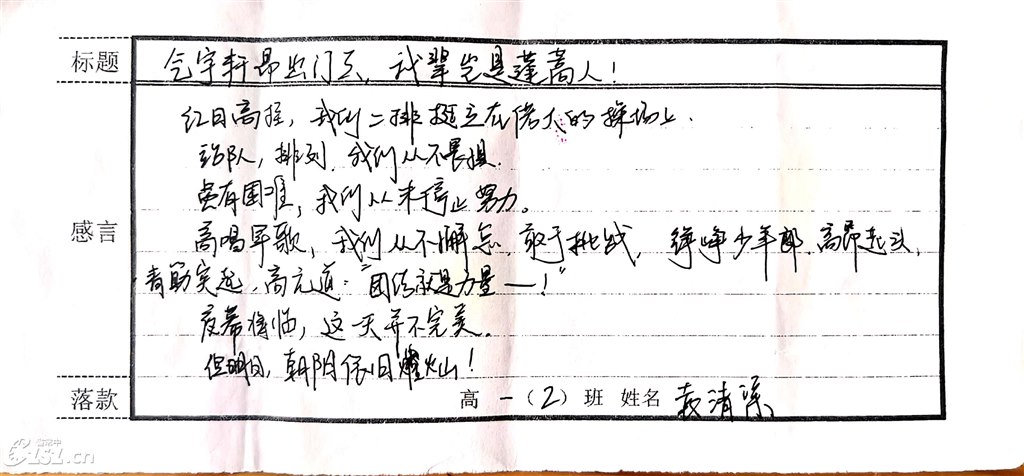 标题 气宇轩昂出门去,我辈岂是蓬蒿人!
红日高挂,我们二排挺立在偌大的操场上.
站队,排列,我们从不畏惧.
虽有困难,我们从未停止努力。
感言
高唱军歌,我们从不懈怠,敢于挑战,铮峥少年郎,高昂起头,
青筋突起,高亢道:“团结就是力量—!”
夜幕将临,这一天并不完美.
但明日,朝阳依旧燦灿!
落款 高一(2)班 姓名 袁清